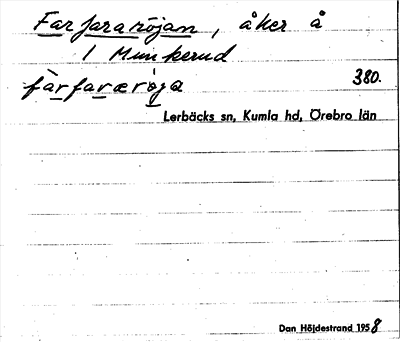 Farfararöjan, åker å
1 Munkerud
fàrfaræröga 380.
Lerbäcks sn, Kumla hd, Örebro län
Dan Höjdestrand 1958